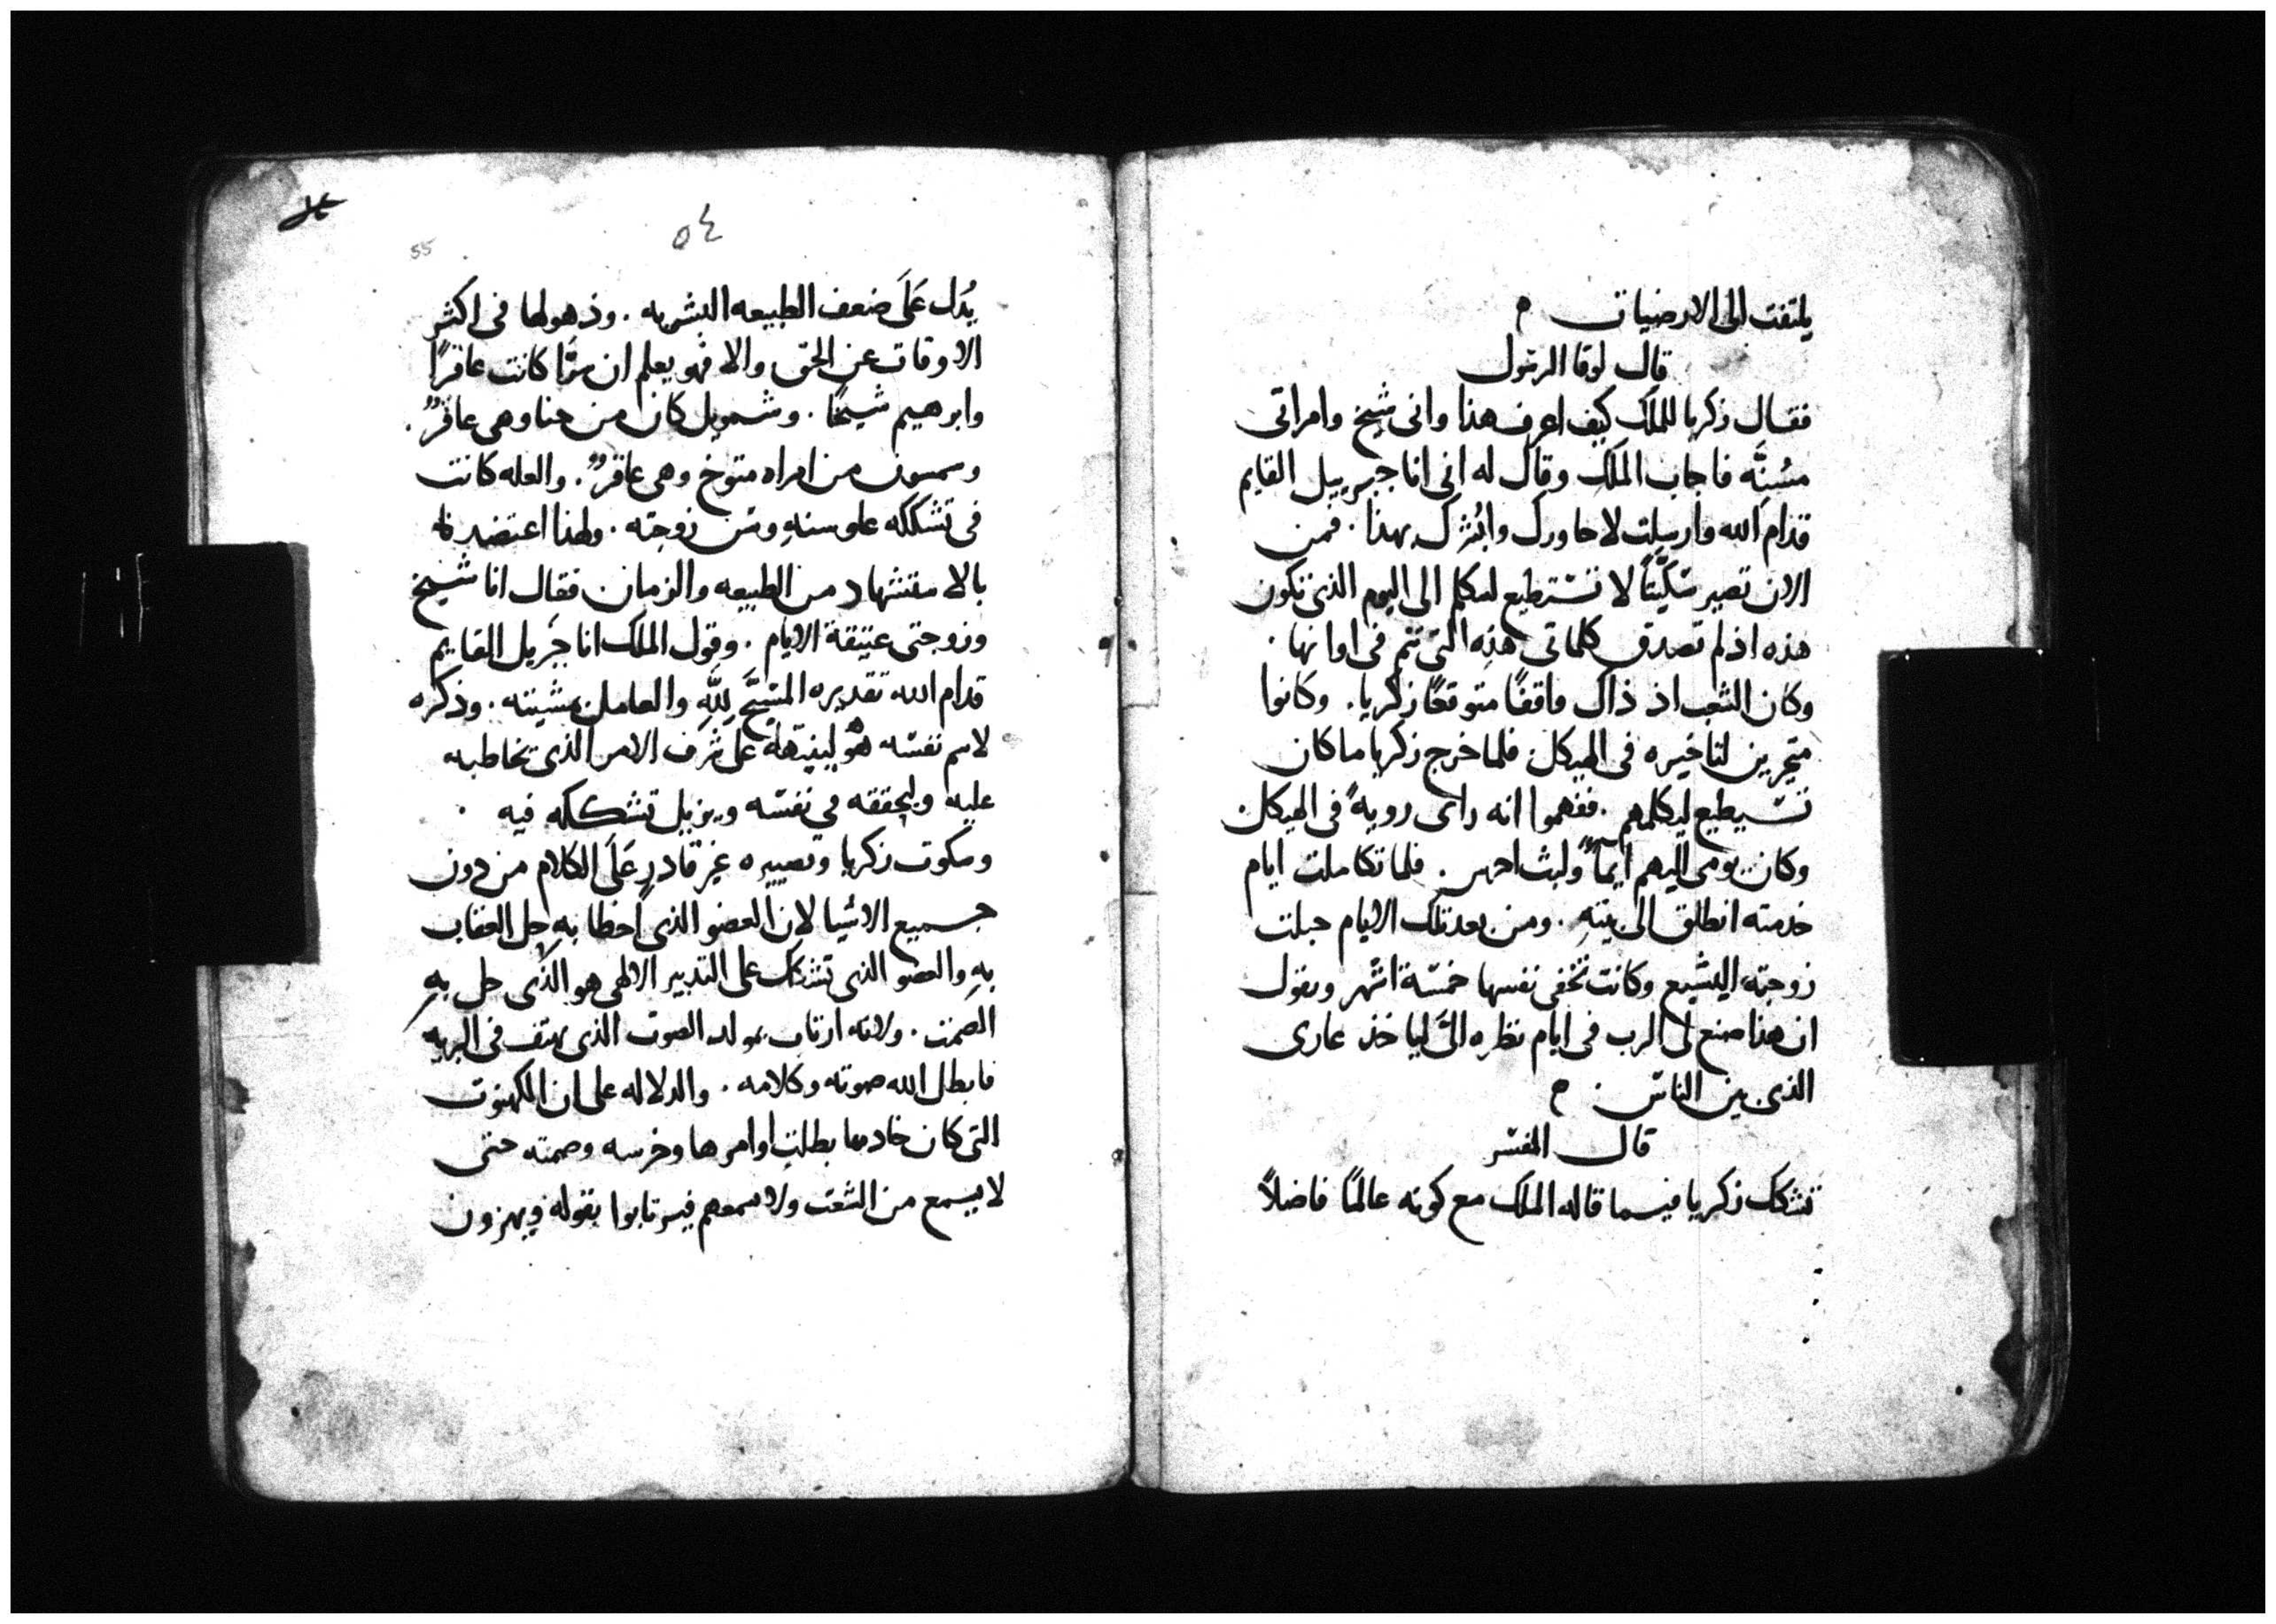 يلتفت الى الارضيات م
قال لوقا الرسول
فقال زكريا للملك كيف اعرف هذا وانى شيخ وامراتى
مسُنَّه فاجاب الملك وقال له انى انا جبرييل القايم
قدام الله وارسِلت لاحاورك وابُشرك بهذا . فمن
الان تصير سكّيتًا لا تستطيع لتكلم الى اليوم الذى تكون
هذه اذ لم تصدق كلماتى هذه التى تتم فى اوانها .
وكان الشعب اذ ذاك واقفًا متوقعًا زكريا . وكانوا
متحيرين لتاخيره فى الهيكل فلما خرج زكريا ما كان
تستطيع ليكلمهم . ففهموا انه راى رويهً فى الهيكل
وكان يومى اليهم ايمآءً ولبث اخرس . فلما تكاملت ايام
خدمته انطلق الى بيتهِ . ومن بعد تلك الايام حبلت
زوجته اليشبع وكانت تخفى نفسها خمسة اشهر وتقول
ان هذا صنع لى الرب فى ايام نظره الىَّ لياخذ عارى
الذى بين الناس . م
قال المفسر
تشكك زكريا فيما قاله الملك مع كونه عالمًا فاضلاً
٥٤
55
يُدل عَلَى ضعف الطبيعه البشريه . وذهولها فى اكثر
الاوقات عن الحق والا فهو يعلم ان سرَّا كانت عاقرًا
وابرهيم شيخًا . وشمويل كان من حنا وهى عاقرٌ .
وسمسون من امراه منوح وهى عاقرٌ . والعله كانت
فى تشككه علو سنهِ وسن زوجته . ولهذا اعتضد
بالاستشهاد من الطبيعه والزمان فقال انا شيخ
وزوجتى عتيقة الايام . وقول الملك انا جَبريل القايم
قدام الله تقديره المسَبّح لِلَّهِ والعامل بمشيته . وذكره
لاسم نفسه هُو لينبهه على شرف الامر الذى تخاطبه
عليه وليحققه فى نفسه ويزيل تشككه فيه .
وسكوت زكريا وتصييره غير قادرٍ عَلَى الكلام من دون
جميع الاشيا لان العضو الذى اخطا به حل العقاب
بهِ والعضو الذى تشكك على التدبير الالهى هو الذى حل بهِ
الصمت . ولانه ارتاب بمولد الصوت الذى يهتف فى البريه
فابطل الله صوته وكلامه . والدلاله على ان الكهنوت
التى كان خادمها بطلت اوامرها وخرسه وصمته حتى
لا يسمع من الشعب ولا يسمعهم فيرتابوا بقوله ويهزون